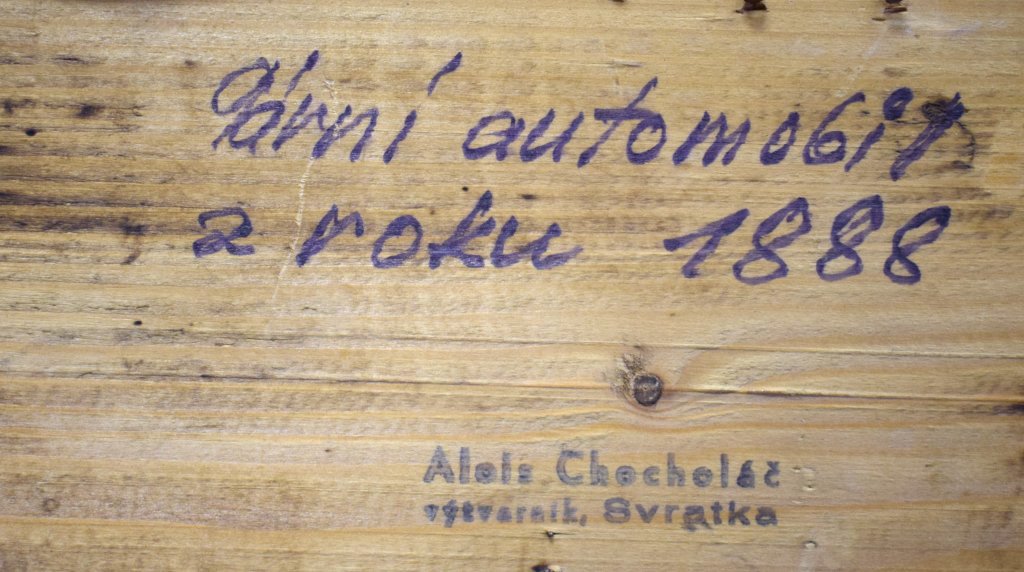 Parní automobil
z roku 1888
Alois Chocholáč
výtvarník, Svratka